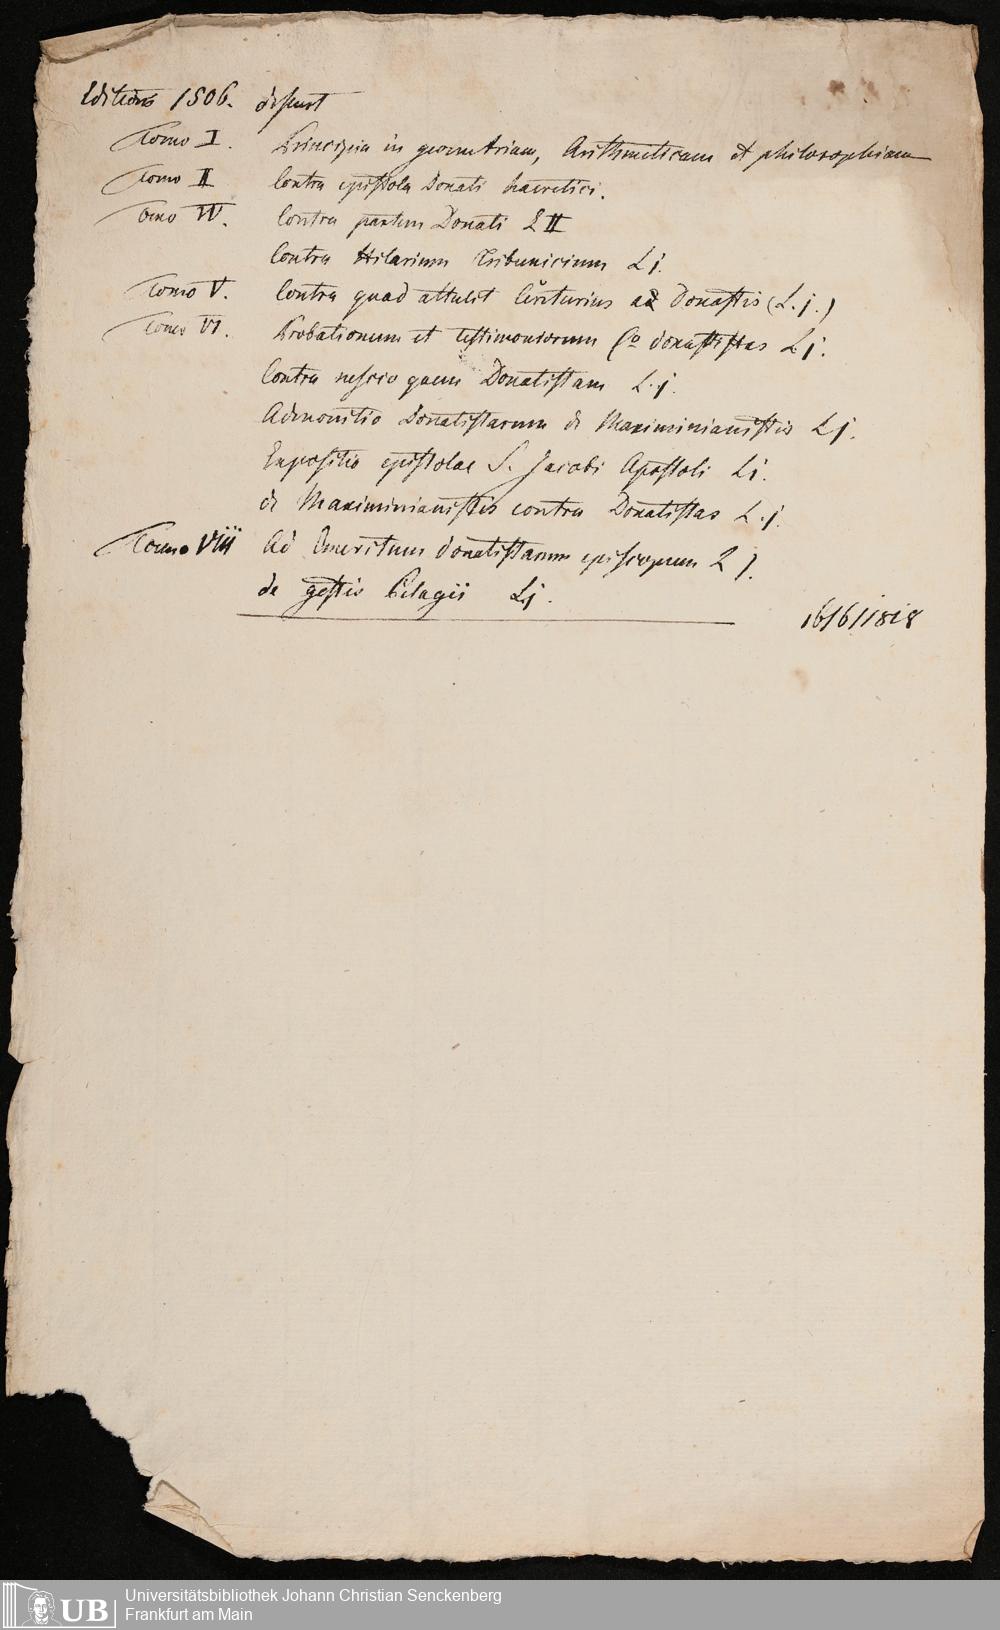 Editionis 1506. desunt
Tomo I. Principia in geometriam, Arithmeticam et philosophiam
Tomo II Contra epistola Donati haeretici.
Tomo IV. Contra partem Donati L II
Contra Hilarium Tribunicium L j.
Tomo V. Contra quod attulit Centurius a Donatistis (L. j.)
Tomo VI. Probationum et testimoniorum Co donatistas L j.
Contra nescio quem Donatistam L. j.
Admonitio Donatistarum de Maximinianistis L j.
Expositio epistolae S. Jacobi Apostoli L j.
de Maximinianistis contra Donatistas L. j.
Tomo VIII Ad Emeritum donatistarum episcopum L j.
de gestis Pelagii L j.
Universitätsbibliothek Johann Christian Senckenberg
Frankfurt am Main
UB